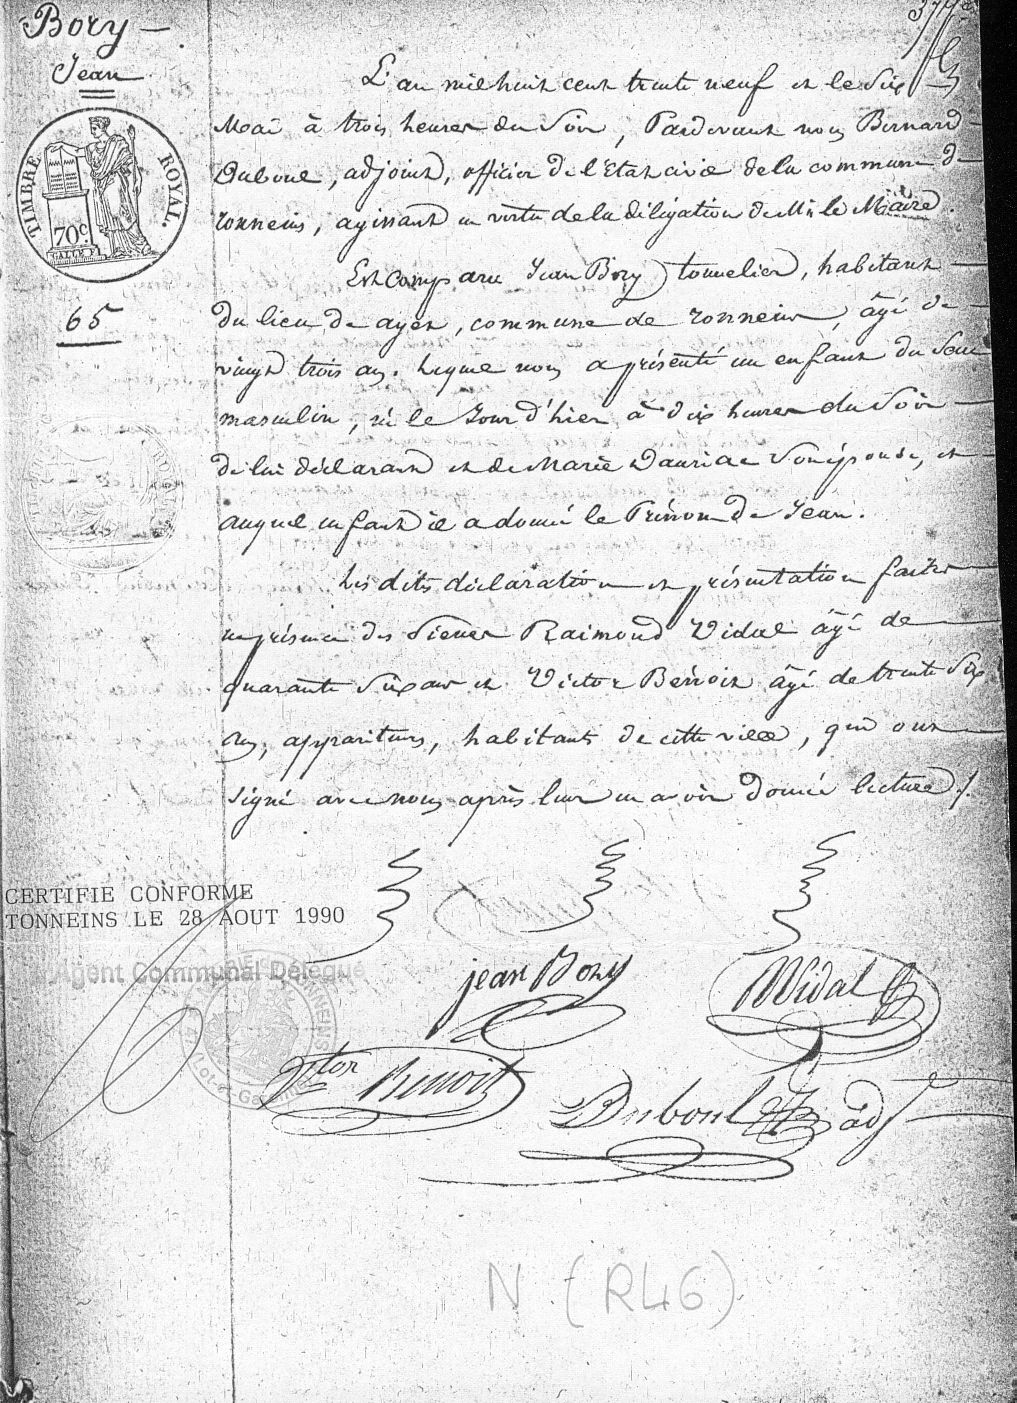 Bory
Jean
TIMBRE ROYAL.
70 c
65
L'an mil huit cent trente neuf et le six
Mai à trois heures du soir, Pardevant nous Bernard
Duboul, adjoint, officier de l'Etat civil de la commune de
Tonneins, agissant en vertu de la délégation de Mr le Maire.
Est Comparu Jean Bory tonnelier, habitant
du lieu de ayet, commune de Tonneins, âgé de
vingt trois ans. Lequel nous a présenté un enfant du sexe
masculin, né le Jour d'hier à dix heures du soir
de lui déclarant et de Marie Dauriac son épouse, et
auquel enfant il a donné le Prénom de Jean.
Les dits déclaration et présentation faites
en présence des Sieurs Raimond Vidal âgé de
quarante six ans et Victor Benoit âgé de trente six
ans, appariteurs, habitants de cette ville, qui ont
signé avec nous après leur en avoir donné lecture ./.
CERTIFIE CONFORME
TONNEINS LE 28 AOUT 1990
Agent Communal Délégué
jean Bory
RVidal
Vtor Benoit
Duboul adj
N (R46)